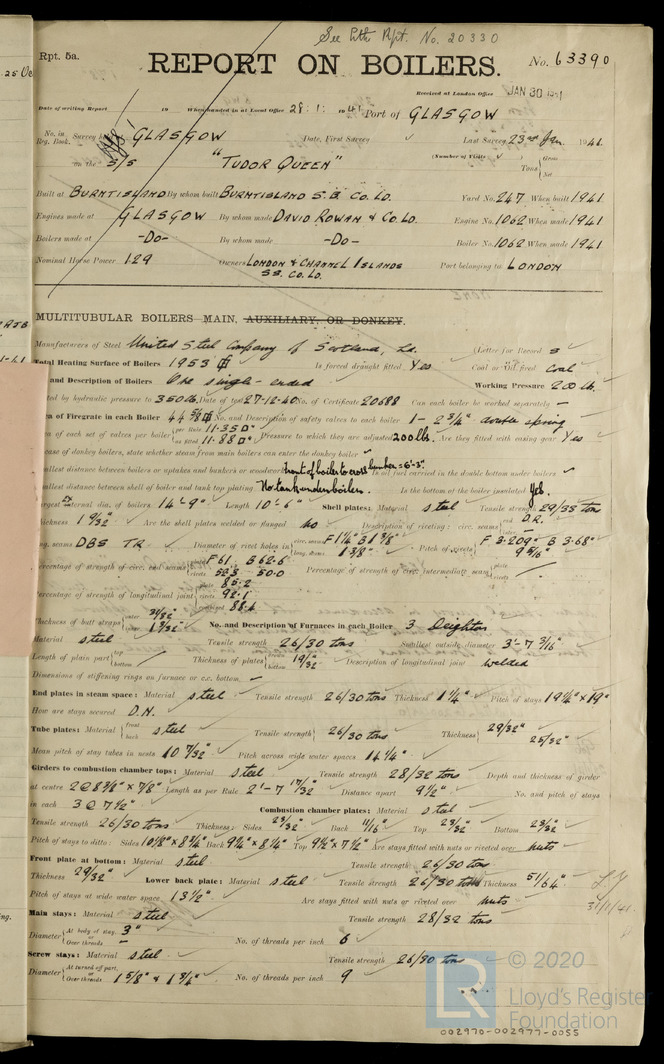 See Lth Rpt. No. 20330
Rpt. 5a.
No. 63390
REPORT ON BOILERS.
25 Oc
Received at London Office JAN 30 1941
Date of writing Report 19 When handed in at Local Office 28.1.1941 Port of GLASGOW
No. in Reg. Book. Survey held GLASGOW Date, First Survey Last Survey 23rd Jan. 1941
on the S/S "TUDOR QUEEN" (Number of Visits ) Tons Gross Net
Built at BURNTISLAND By whom built BURNTISLAND S.B. Co. LD. Yard No. 247 When built 1941
Engines made at GLASGOW By whom made DAVID ROWAN & Co. LD. Engine No. 1062 When made 1941
Boilers made at -Do- By whom made -Do- Boiler No. 1062 When made 1941
Nominal Horse Power 129 Owners LONDON & CHANNEL ISLANDS SS. Co. LD. Port belonging to LONDON
MULTITUBULAR BOILERS MAIN, AUXILIARY, OR DONKEY.
Manufacturers of Steel United Steel Company of Scotland, Ld. (Letter for Record S
Total Heating Surface of Boilers 1953 Is forced draught fitted Yes Coal or Oil fired Coal
and Description of Boilers One single-ended Working Pressure 200 lb.
ted by hydraulic pressure to 350 lb. Date of test 27-12-40 No. of Certificate 20688 Can each boiler be worked separately -
ea of Firegrate in each Boiler 44 5/8 No. and Description of safety valves to each boiler 1 - 2 3/4" double spring
ea of each set of valves per boiler per Rule 11.35 as fitted 11.88 Pressure to which they are adjusted 200 lbs. Are they fitted with easing gear Yes
case of donkey boilers, state whether steam from main boilers can enter the donkey boiler
allest distance between boilers or uptakes and bunkers or woodwork front of boiler to cross bunker = 6'-3" Is oil fuel carried in the double bottom under boilers
allest distance between shell of boiler and tank top plating No tank under boilers. Is the bottom of the boiler insulated Yes.
Largest ex internal dia. of boilers 14'-9" Length 10'-6" Shell plates: Material steel Tensile strength 29/33 tons
Thickness 1 9/32" Are the shell plates welded or flanged no Description of riveting: circ. seams end D.R.
long. seams DBS TR Diameter of rivet holes in circ. seams F 1 1/4" B 1 3/8" long. seams 1 3/8" Pitch of rivets F 3.209" B 3.68" 9 5/16"
Percentage of strength of circ. end seams plate F 61. B 62.6 rivets 52.8 50.0 Percentage of strength of circ. intermediate seam plate rivets
Percentage of strength of longitudinal joint plate 85.2 rivets 92.1 combined 88.4
Thickness of butt straps outer 31/32" inner 1 3/32" No. and Description of Furnaces in each Boiler 3 Deighton
Material steel Tensile strength 26/30 tons Smallest outside diameter 3'-7 3/16"
Length of plain part top bottom Thickness of plates crown bottom 19/32" Description of longitudinal joint welded
Dimensions of stiffening rings on furnace or c.c. bottom -
End plates in steam space: Material steel Tensile strength 26/30 tons Thickness 1 1/4" Pitch of stays 19 1/4" x 19"
How are stays secured D.N.
Tube plates: Material front back steel Tensile strength 26/30 tons Thickness 29/32" 25/32"
Mean pitch of stay tubes in nests 10 7/32" Pitch across wide water spaces 14 1/4"
Girders to combustion chamber tops: Material steel Tensile strength 28/32 tons Depth and thickness of girder
at centre 2 @ 8 3/4" x 7/8" Length as per Rule 2'-7 17/32" Distance apart 9 1/2" No. and pitch of stays
in each 3 @ 7 1/2" Combustion chamber plates: Material steel
Tensile strength 26/30 tons Thickness: Sides 23/32" Back 11/16" Top 23/32" Bottom 23/32"
Pitch of stays to ditto: Sides 10 1/8" x 8 3/4" Back 9 1/4" x 8 1/4" Top 9 1/2" x 7 1/2" Are stays fitted with nuts or riveted over nuts
Front plate at bottom: Material steel Tensile strength 26/30 tons
Thickness 29/32" Lower back plate: Material steel Tensile strength 26/30 tons Thickness 51/64"
Pitch of stays at wide water space 13 1/2" Are stays fitted with nuts or riveted over nuts
Main stays: Material steel Tensile strength 28/32 tons
Diameter At body of stay, or Over threads 3" - No. of threads per inch 6
Screw stays: Material steel Tensile strength 26/30 tons
Diameter At turned off part, or Over threads 1 5/8" & 1 3/4" No. of threads per inch 9
31/1/41
LR
© 2020
Lloyd's Register
Foundation
002970-002977-0055